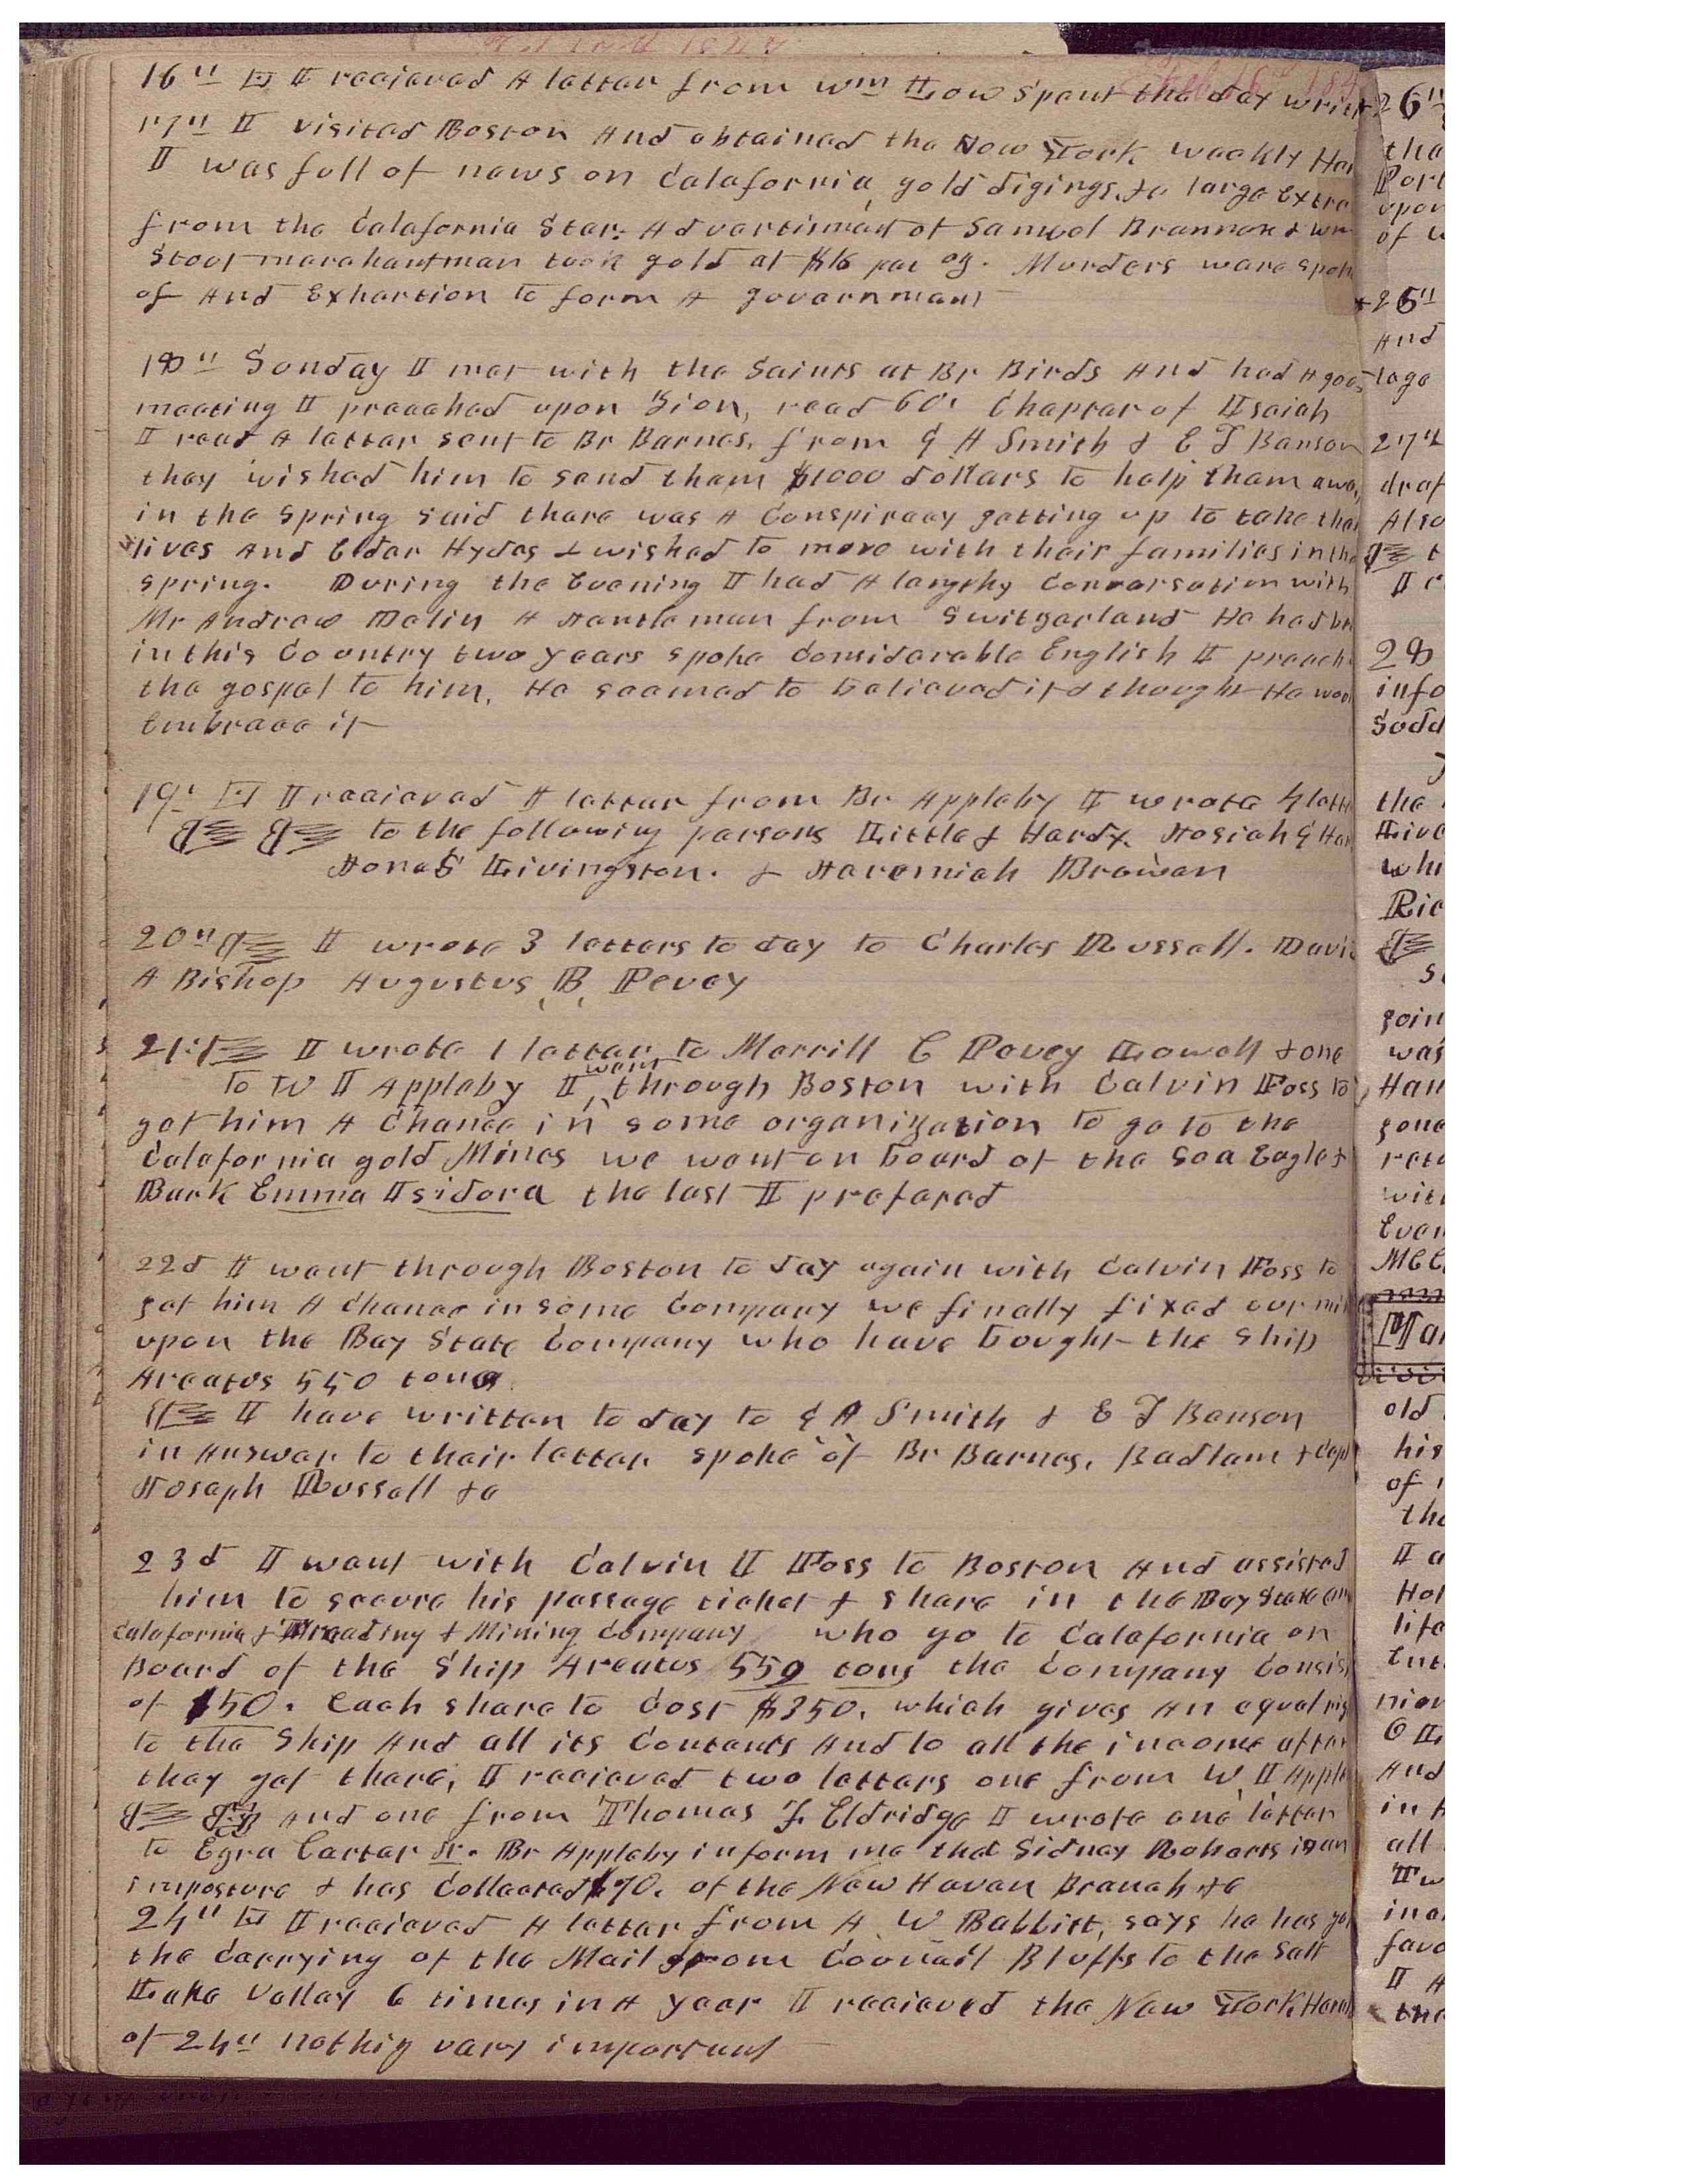 Feb 16th 184
16th I received A letter from Wm Low spent the day writ
17th I visited Boston And obtained the New York weekly Her
I was full of news on Calafornia, gold digings, &c large Extra
from the Calafornia Star. Advertisment of Samuel Brannan & Wm
Stoot marchantman took gold at $16 per oz. Murders were spok
of And Exhortion to form A government
18th Sunday I met with the Saints at Br Birds And had A good
meeting I preached upon Zion, read 60. Chapter of Isaiah
I read A letter sent to Br Barnes, from G A Smith & E T Benson
they wished him to send them $1000 dollars to help them awa
in the spring said there was A Conspiracy getting up to take their
lives And Elder Hydes & wished to move with their families in the
spring. During the Evening I had A lengthy Conversation with
Mr Andrew Dolin A Gentleman from Switzerland He had be
in this Country two years spoke Considerable English I preach
the gospel to him, He seemed to believed it & thought He wou
Embrace it
19. I received A letter from Br Appleby I wrote 4 lette
to the following persons Little & Hardy. Josiah G Har
Jonas Livingston. & Jeremiah Browan
20th I wrote 3 letters to day to Charles Russell. Davi
A Bishop Augustus, B, Pevey
21st I wrote 1 letter to Merrill C Pevey Lowell & one
to W I Appleby I went through Boston with Calvin Foss to
get him A Chance in some organization to go to the
Calafornia gold Mines we went on board of the Sea Eagle &
Bark Emma Isidora the last I prefered
22d I went through Boston to day again with Calvin Foss to
get him A Chance in some Company we finally fixed our mi
upon the Bay State Company who have bought the Ship
Areatus 550 tons.
I have written to day to G A Smith & E T Benson
in Answer to their letter spoke of Br Barnes, Badlam & Cap
Joseph Russell &c
23d I went with Calvin I Foss to Boston And assisted
him to secure his passage ticket & share in the Bay State
Calafornia & Treading & Mining Company who go to Calafornia on
Board of the Ship Areatus 559 tons the Company Consis
of 150. Each share to Cost $350. which gives An equal rig
to the Ship And all its Contents And to all the income after
they get there, I received two letters one from W I Apple
And one from Thomas J. Eldridge I wrote one letter
to Ezra Carter Sr. Br Appleby inform me that Sidney Roberts is an
imposture & has Collected $70. of the New Haven Branch &c
24th I received A letter from A W Babbitt, says he has go
the Carrying of the Mail from Council Bluffs to the Salt
Lake Valley 6 times in A year I received the New York Heral
of 24th nothig very important
26th
the
Port
upon
of
25th
And
lege
27th
draf
Also
I
28
info
Sodd
the
Live
whi
Ric
goin
was
Han
gone
retu
wit
Even
Mar
old
his
of
the
I a
Hol
life
Ent
And
in A
all
favo